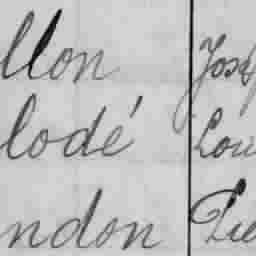 llon Josep
lodé Loui
ndon Pie